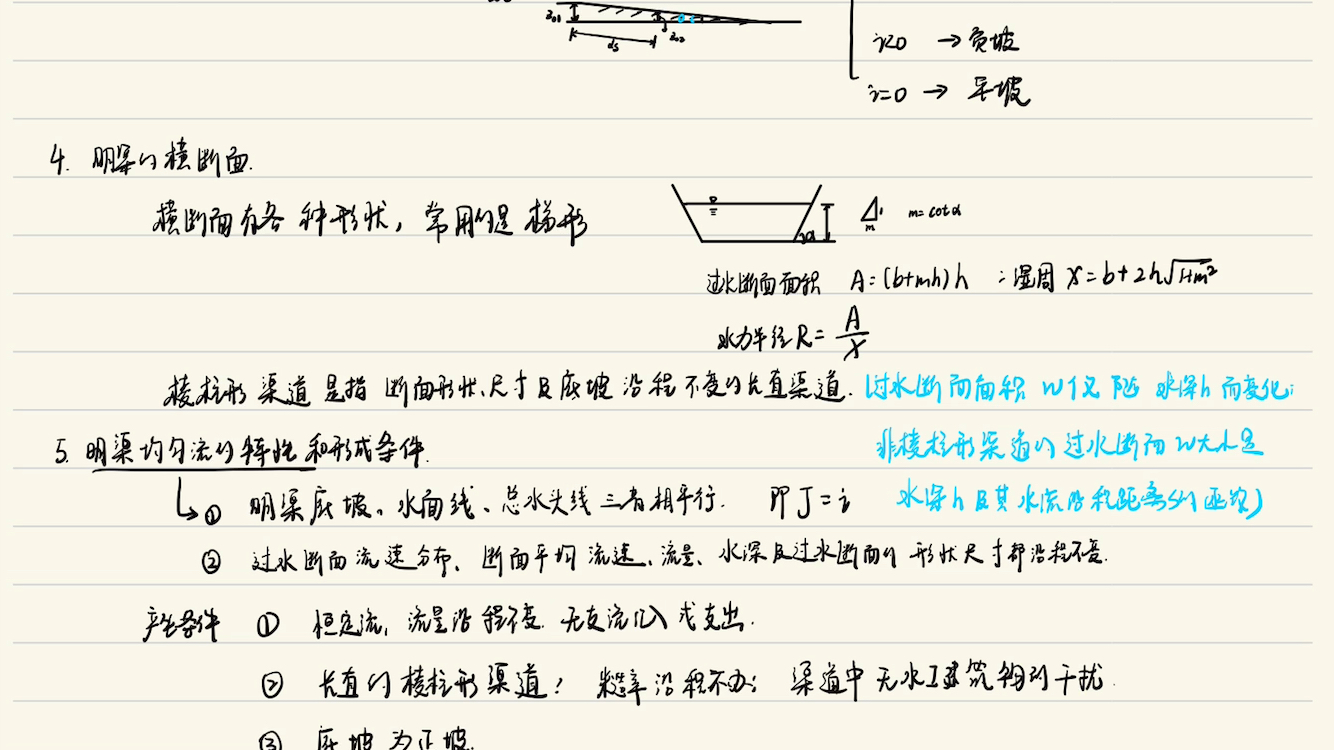 Z01
ds
Z02
i<0 → 负坡
i=0 → 平坡
4. 明渠的横断面.
横断面有各种形状, 常用的是梯形
1
m
m=cotα
α
过水断面面积 A=(b+mh)h ; 湿周 X=b+2h√1+m²
水力半径R= A/X
棱柱形渠道是指断面形状、尺寸及底坡沿程不变的长直渠道. (过水断面面积 w仅随水深h而变化;
5. 明渠均匀流的特性和形成条件. 非棱柱形渠道的过水断面w大小是
① 明渠底坡、水面线、总水头线三者相平行. 即 J=i 水深h及其水流沿程距离s的函数)
② 过水断面流速分布、断面平均流速、流量、水深及过水断面的形状尺寸都沿程不变.
产生条件 ① 恒定流, 流量沿程不变. 无支流汇入或支出.
② 长直的棱柱形渠道; 糙率沿程不变; 渠道中无水工建筑物的干扰.
③ 底坡为正坡.